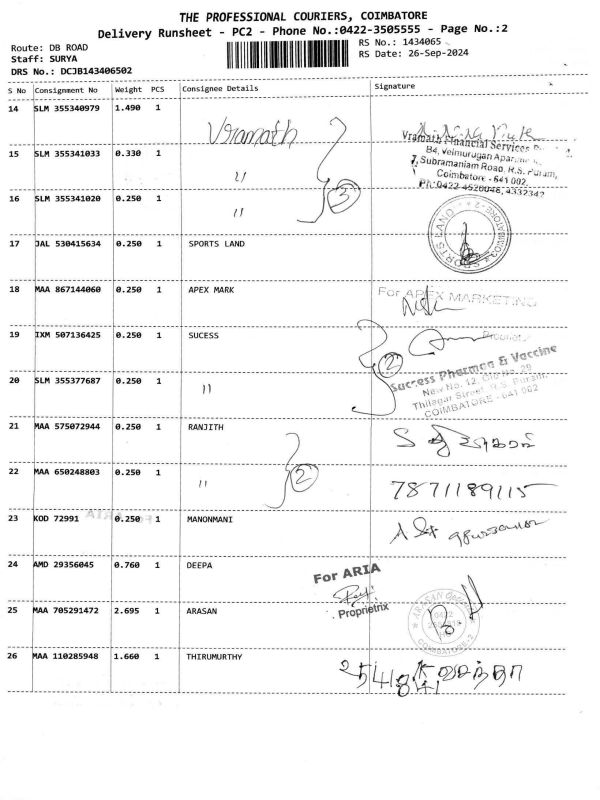 THE PROFESSIONAL COURIERS, COIMBATORE
Delivery Runsheet - PC2 - Phone No.:0422-3505555 - Page No.:2
Route: DB ROAD
Staff: SURYA
DRS No.: DCJB143406502
RS No.: 1434065
RS Date: 26-Sep-2024
S No Consignment No Weight PCS Consignee Details Signature
14 SLM 355340979 1.490 1 Vramath
15 SLM 355341033 0.330 1 "
16 SLM 355341020 0.250 1 "
3
Vramath Financial Services
B4, Velmurugan
7, Subramaniam Road, R.S. Puram,
Coimbatore - 641 002.
Ph: 0422 4520046, 4332342
17 JAL 530415634 0.250 1 SPORTS LAND
SPORTS LAND COIMBATORE-2
18 MAA 867144060 0.250 1 APEX MARK
For APEX MARKETING
19 IXM 507136425 0.250 1 SUCESS
20 SLM 355377687 0.250 1 "
2
Success Pharma & Vaccine
New No. 12, Old No. 29
Thilagar Street, R.S. Puram
COIMBATORE - 641 002
21 MAA 575072944 0.250 1 RANJITH
22 MAA 650248803 0.250 1 "
2
7871189115
23 KOD 72991 0.250 1 MANONMANI
24 AMD 29356045 0.760 1 DEEPA
For ARIA
Proprietrix
25 MAA 705291472 2.695 1 ARASAN
COIMBATORE-2
26 MAA 110285948 1.660 1 THIRUMURTHY